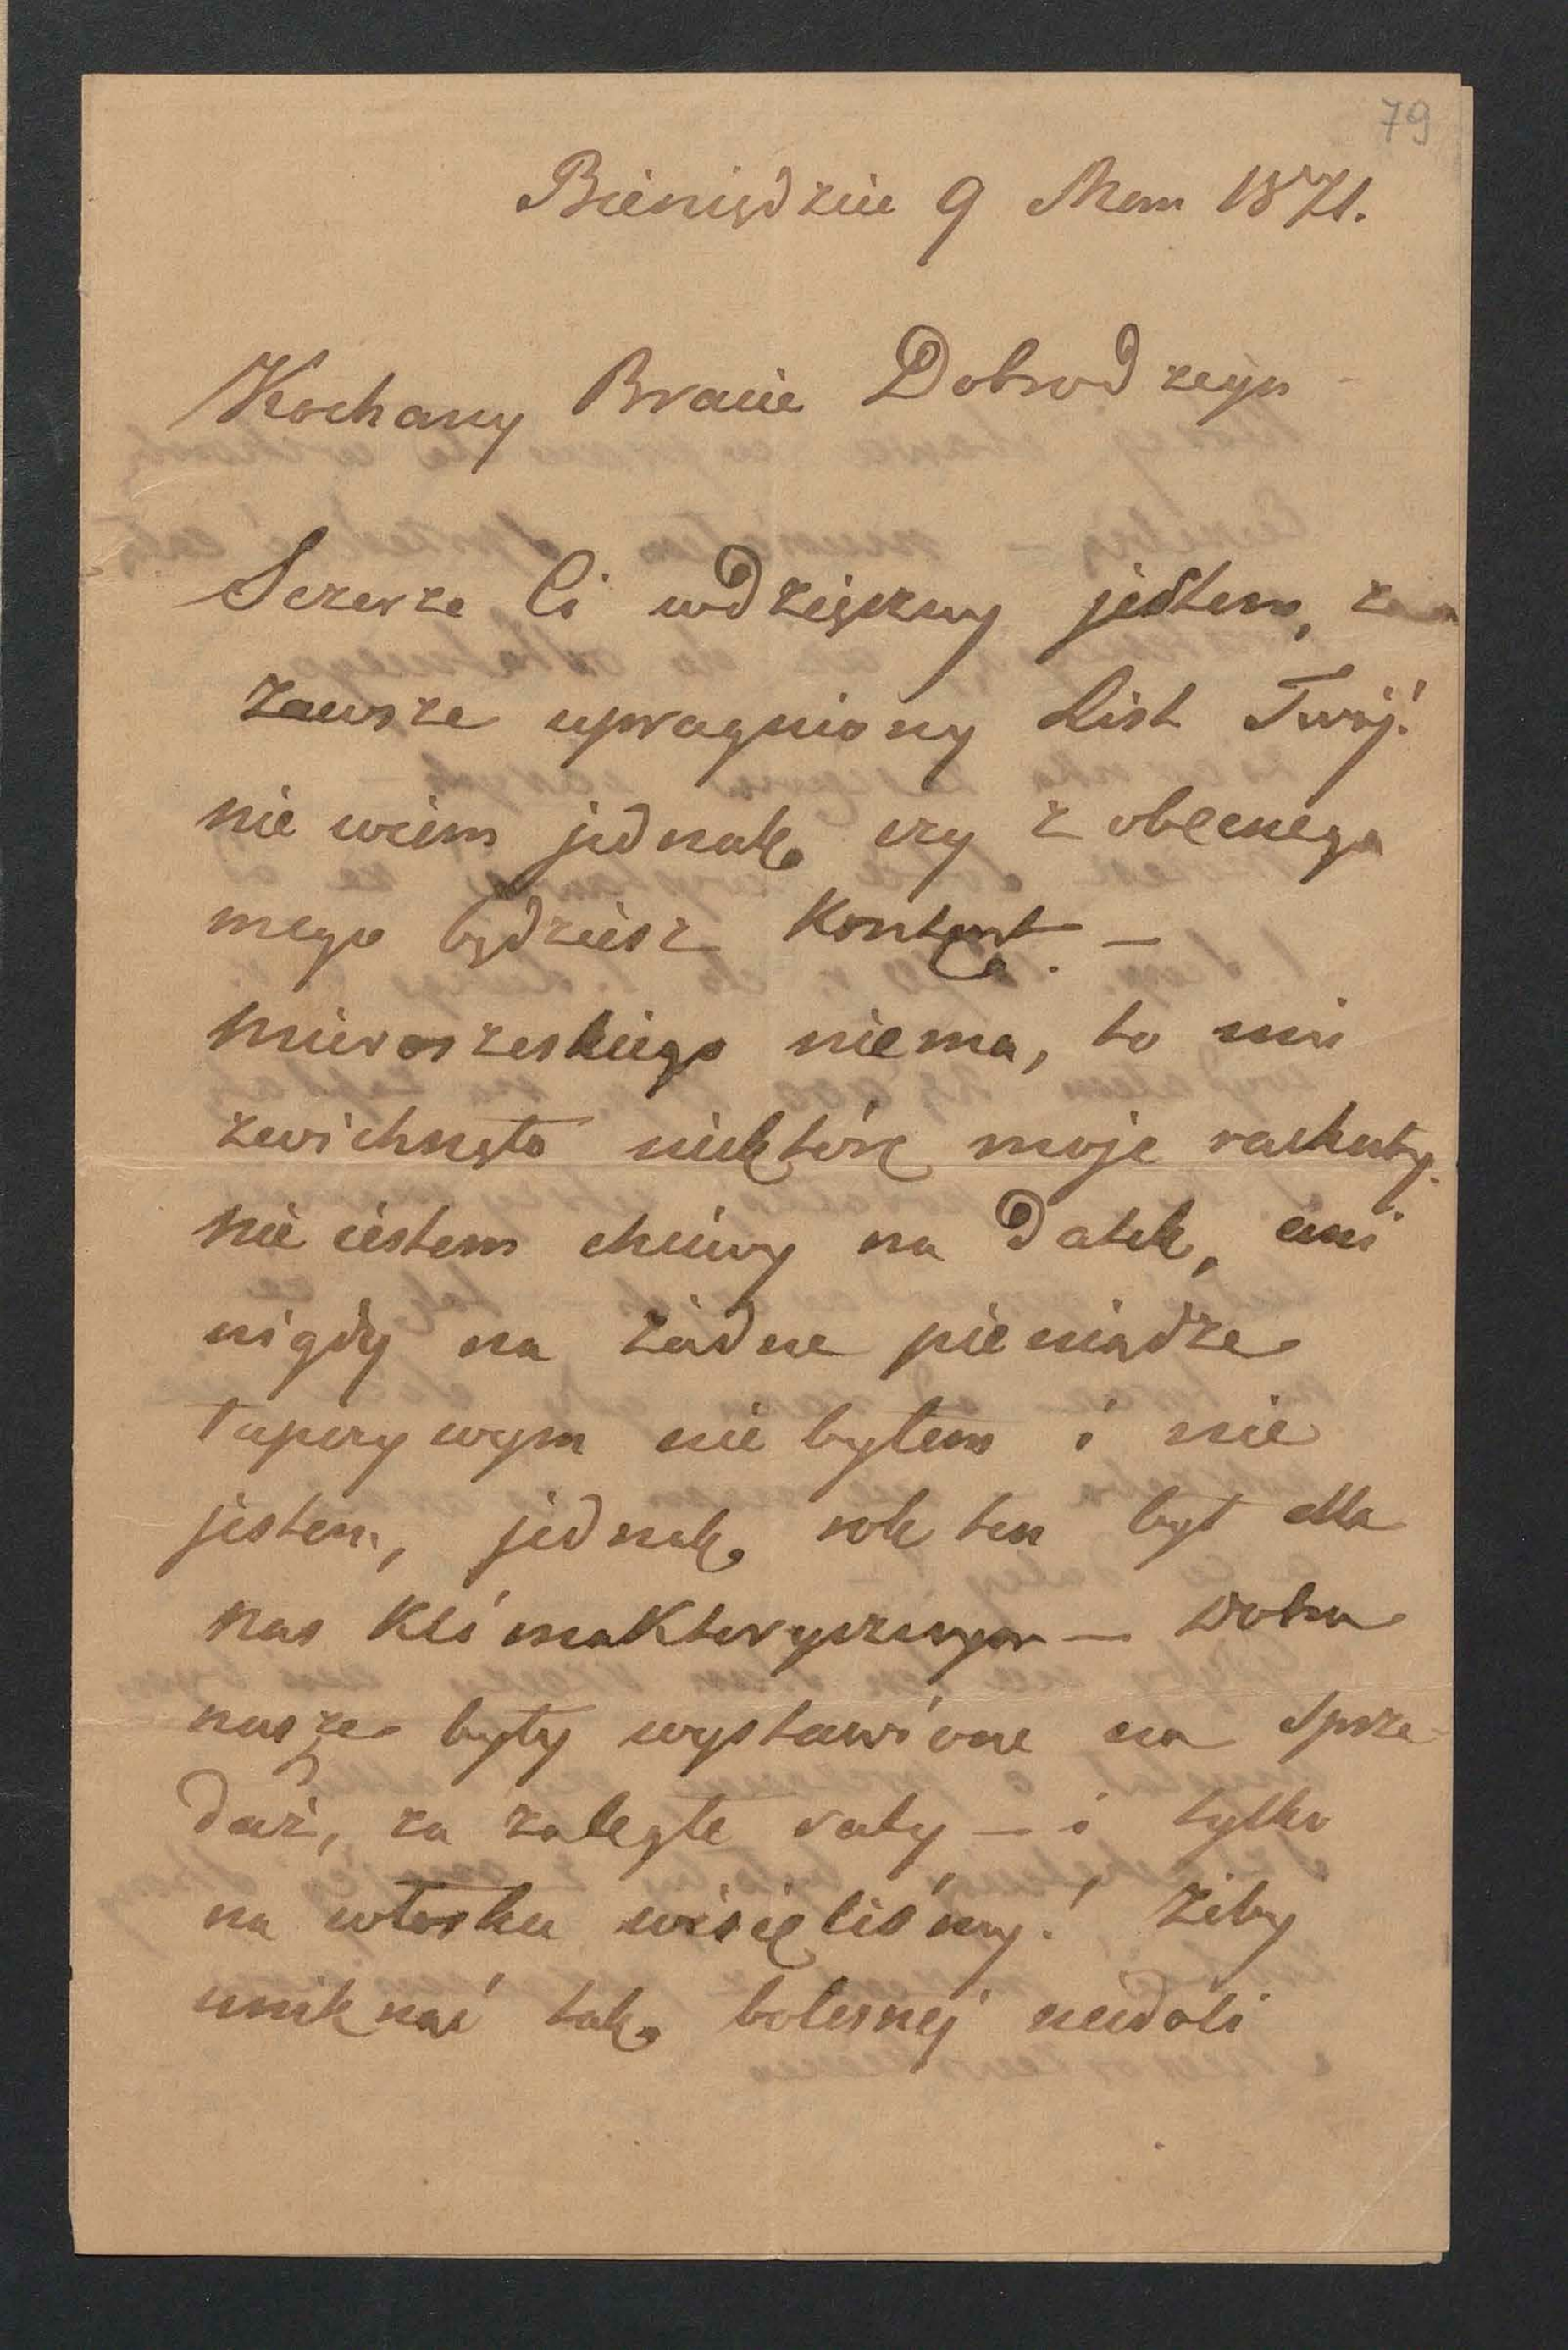 79
Bieniędzice 9 1871.
Kochany Bracie Dobrodzeju
Szczerze Ci wdzięczny jestem, za
zawsze upragniony List Twój!
nie wiem jednak czy z obecnego
mego będziesz Kontent. —
Mieroszeskiego niema, to mi
zwichnęło niektóre moje rachuby.
nie iestem chciwy na Datek, ani
nigdy na żadne pieniądze
łapczywym nie byłem i nie
jestem, jednak rok ten był dla
nas Klimakterycznym — Dobra
nasze były wystawione na Sprze-
daż, za zaległe raty — i tylko
na włosku wisięliśmy! Żeby
uniknąć tak bolesnej niedoli